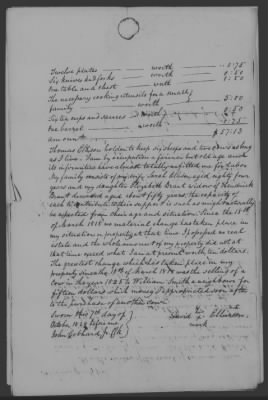 Twelve plates — worth — .75
Six knives and forks — worth — 0:50
One table and chest worth 0:50
The necessary cooking utensils for a small
family — worth — 5:00
Six tea cups and saucers — worth
One barrel worth
amount — $57.13
Thomas Ellison to keep six sheep and two cows as long
as I live. I am by occupation a farmer but old age and
its infirmities have almost totally unfitted me for labor.
My family consists of my wife Sarah Ellison, aged eighty four
years and my daughter Elizabeth Brant widow of Hendrick
Brant deceased aged about fifty years. The capacity of
each to contribute to their support is such as might naturally
be expected from their age and situation. Since the 18th
of March 1818 no material change has taken place in
my situation or property at that time I possessed no real
estate and the whole amount of my property did not at
that time exceed what I am at present worth ten dollars.
The greatest change which has taken place in my
property since the 18th of March 1818 was the selling of a
cow in the year 1825 to William Smith a neighbour for
fifteen dollars which money I appropriated soon after
to the purchase of another cow.
Sworn this 7th day of
October 1828 before me David his x mark Ellison
John Gebhard Jr Clk